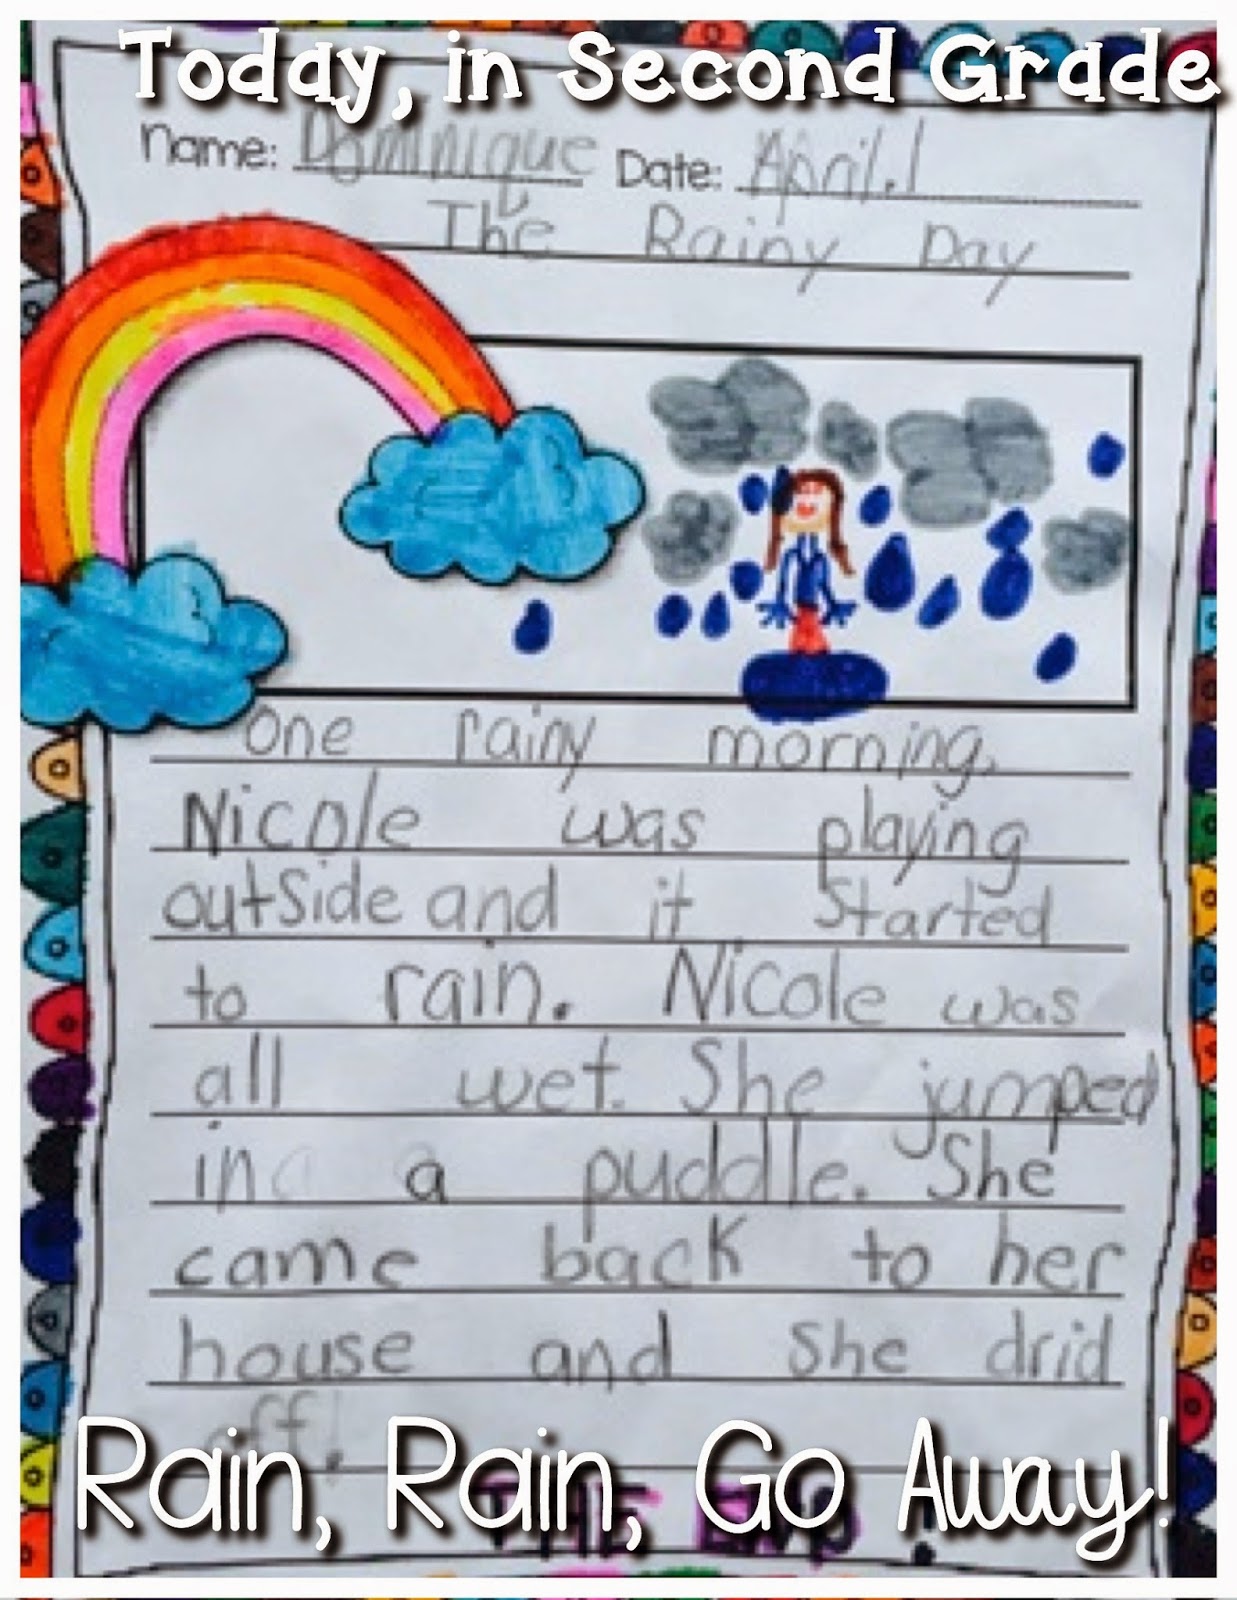 Today, in Second Grade
Name: Dominique Date: April.1
The Rainy Day
One rainy morning,
Nicole was playing
outside and it started
to rain. Nicole was
all wet. She jumped
in a puddle. She
came back to her
house and she drid
off!
Rain, Rain, Go Away!
THE END